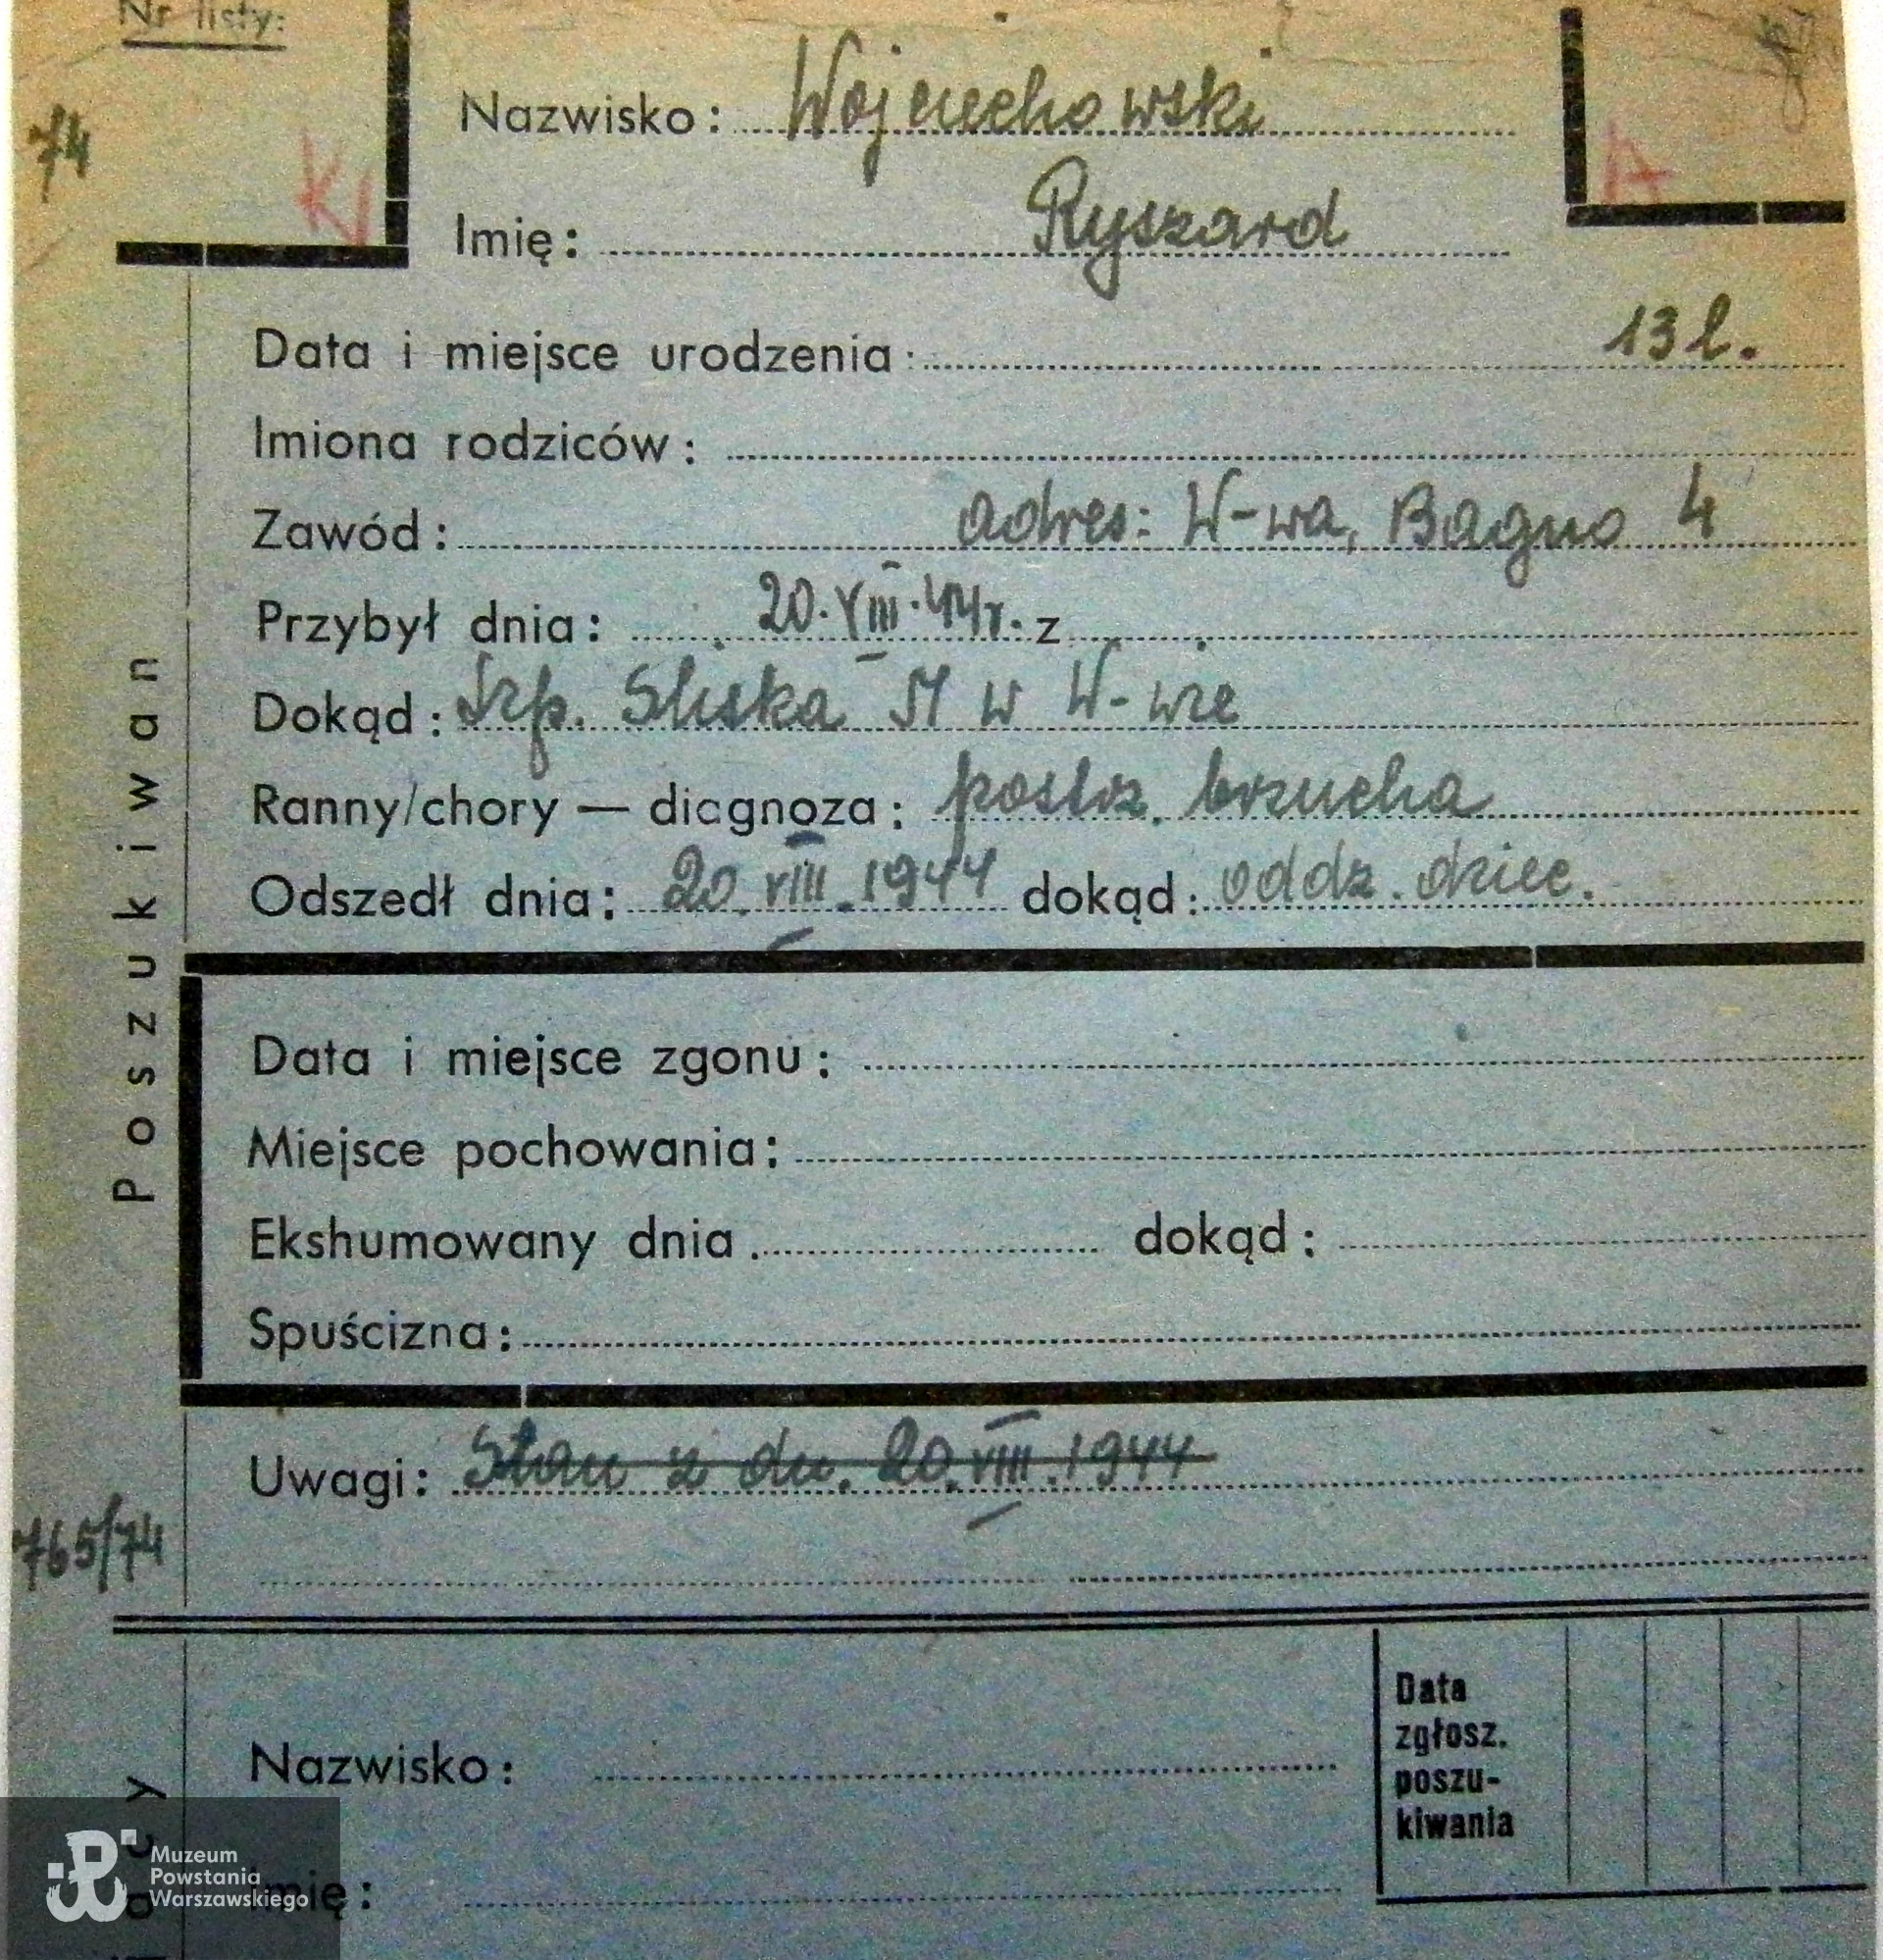 Nr listy:
74
K
A
Nazwisko: Wojciechowski
Imię: Ryszard
Data i miejsce urodzenia: 13 l.
Imiona rodziców:
Zawód: adres: W-wa, Bagno 4
Przybył dnia: 20.VIII.44r. z
Dokąd: Szp. Śliska 51 w W-wie
Ranny/chory — diagnoza: postrz. brzucha
Odszedł dnia: 20.VIII.1944 dokąd: oddz. dziec.
Poszukiwan
Data i miejsce zgonu:
Miejsce pochowania:
Ekshumowany dnia dokąd:
Spuścizna:
Uwagi: Stan z dn. 20.VIII.1944
765/74
Nazwisko:
Data
zgłosz.
poszu-
kiwania
Imię:
Muzeum
Powstania
Warszawskiego